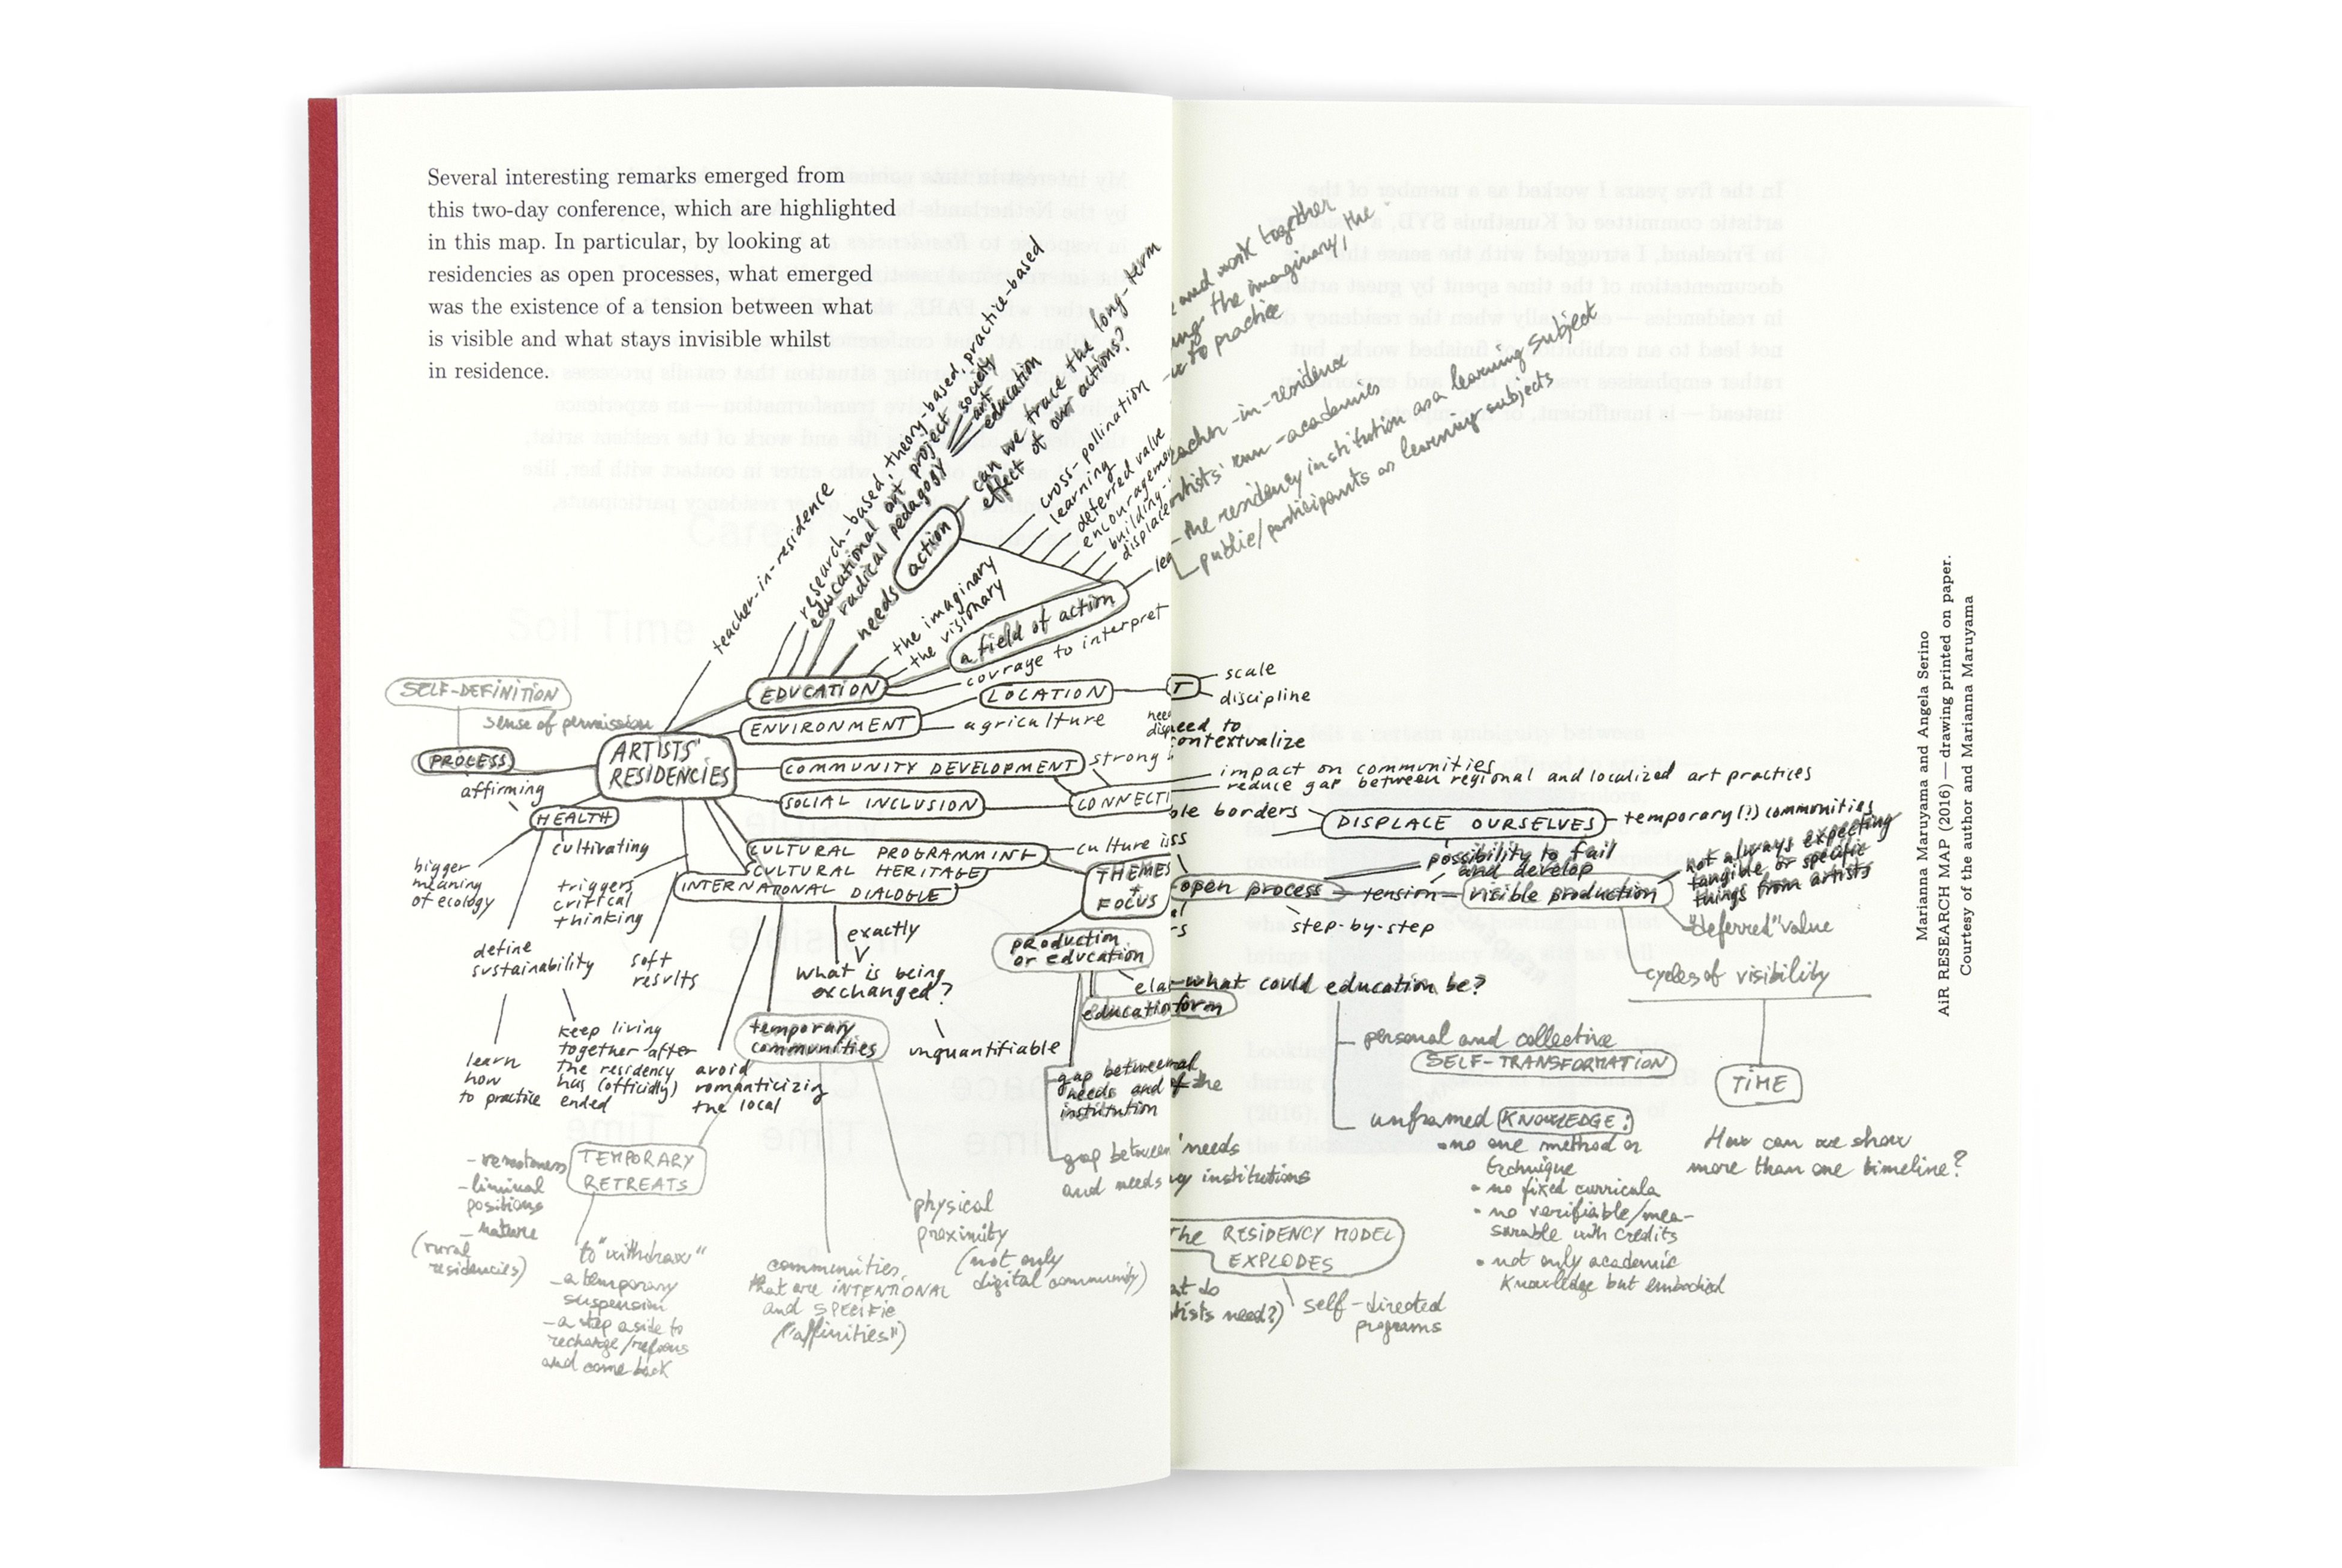 Several interesting remarks emerged from
this two-day conference, which are highlighted
in this map. In particular, by looking at
residencies as open processes, what emerged
was the existence of a tension between what
is visible and what stays invisible whilst
in residence.
teacher-in-residence
research-based, theory-based, practice-based
educational art project
radical pedagogy
society
art
education
needs
action
can we trace the long-term
effect of our actions?
cross-pollination
learning
deferred value
encouragemen
building-
displace
the imaginary
the visionary
a field of action
lea
courage to interpret
EDUCATION
LOCATION
ENVIRONMENT
agriculture
SELF-DEFINITION
sense of permission
PROCESS
affirming
ARTISTS'
RESIDENCIES
COMMUNITY DEVELOPMENT
strong
SOCIAL INCLUSION
CONNECTI
HEALTH
cultivating
bigger
meaning
of ecology
triggers
critical
thinking
CULTURAL PROGRAMMING
CULTURAL HERITAGE
INTERNATIONAL DIALOGUE
culture is
THEMES
+
FOCUS
define
sustainability
soft
results
exactly
V
what is being
exchanged?
unquantifiable
production
or education
learn
how
to practice
keep living
together after
the residency
has (officially)
ended
avoid
romanticizing
the local
temporary
communities
gap between
needs and
institution
gap between
and needs
TEMPORARY
RETREATS
- remoteness
- liminal
positions
- nature
(rural
residencies)
to "withdraw"
- a temporary
suspension
- a step aside to
recharge/refocus
and come back
communities
that are INTENTIONAL
and SPECIFIC
("affinities")
physical
proximity
(not only
digital community)
and work together
the imaginary, the
to practice
acher-in-residence
artists' run-academies
the residency institution as a learning subject
public/participants as learning subjects
T
scale
discipline
need to
contextualize
impact on communities
reduce gap between regional and localized art practices
ble borders
DISPLACE OURSELVES
temporary(!) communities
possibility to fail
and develop
open process
tension
visible production
not always expecting
tangible or specific
things from artists
"deferred" value
step-by-step
cycles of visibility
what could education be?
form
personal and collective
SELF-TRANSFORMATION
TIME
unframed KNOWLEDGE:
• no one method or
technique
• no fixed curricula
• no verifiable/mea-
surable with credits
• not only academic
knowledge but embodied
How can we show
more than one timeline?
of the
needs
institutions
the RESIDENCY MODEL
EXPLODES
at do
tists need?)
self-directed
programs
Marianna Maruyama and Angela Serino
AiR RESEARCH MAP (2016) — drawing printed on paper.
Courtesy of the author and Marianna Maruyama